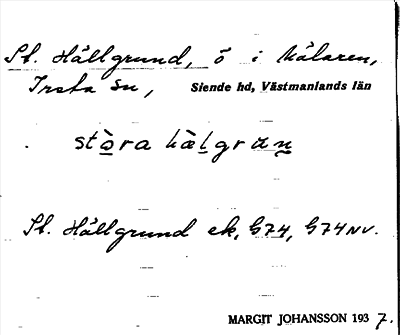 St. Hällgrund, ö i Mälaren,
Irsta sn, Siende hd, Västmanlands län
stòra hàlgrun
St. Hällgrund ek, G74, G74NV.
MARGIT JOHANSSON 1937.